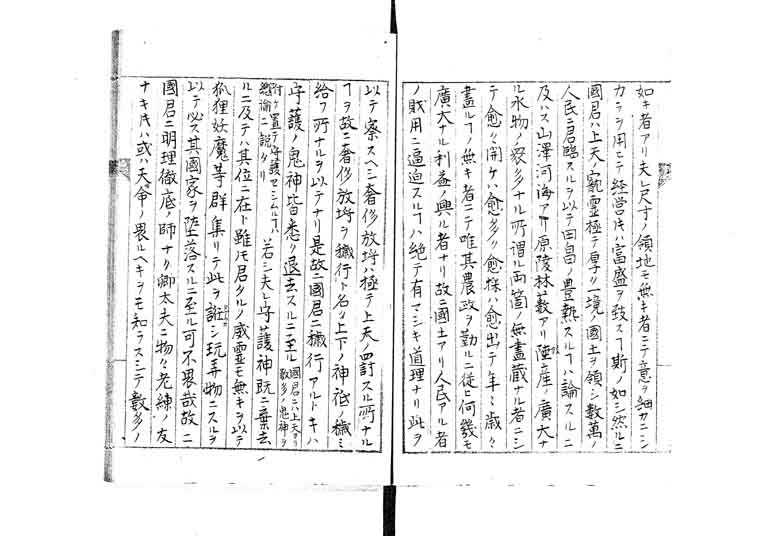 如キ者アリ夫レ尺寸ノ領地モ無キ者ニテ意ヲ細カニシ
カラヲ用ヒテ経営スレハ富盛ヲ致スヿ斯ノ如シ然ルニ
國君ハ上天ノ寵霊極テ厚ク一境ノ國土ヲ領シ數萬ノ
人民ニ君臨スルヲ以テ田畠ノ豊熟スルヿハ論スルニ
及ハス山澤河海アリ原陵林藪アリ陸産ノ廣大ナ
ル水物ノ衆多ナル所謂ル両箇ノ無盡蔵ナル者ニシ
テ愈々開ケハ愈多ク愈採ハ愈出テ年々歳々
盡ルヿノ無キ者ニテ唯其農政ヲ勤ルニ従ヒ何幾モ
廣大ナル利益ノ興ル者ナリ故ニ國土アリ人民アル者
ノ財用ニ逼迫スルヿハ絶テ有マシキ道理ナリ此ヲ
以テ察スヘシ奢侈放埓ハ極テ上天ノ罸スル所ナル
ヿヲ故ニ奢侈放埓ヲ穢行ト名ク上下ノ神祇ノ穢ミ
給フ所ナルヲ以テナリ是故ニ國君ニ穢行アルトキハ
守護ノ鬼神皆悉ク退去スルニ至ル國君ニハ上天ヨリ數多ノ鬼神ヲ
附ケ置テ守護セシムルヿハ總論ニ説タリ若シ夫レ守護神既ニ棄去
ルニ及テハ其位ニ在ト雖モ君タルノ威霊モ無キヲ以テ
狐狸妖魔等群集リテ此ヲ誑シ玩弄物ニスルヲ
以テ必ス其國家ヲ墮落スルニ至ル可不畏哉故ニ
國君ニ明理徹底ノ師ナク卿太夫ニ物々老練ノ友
ナキトキハ或ハ天命ノ畏ルヘキヲモ知ラスシテ數多ノ